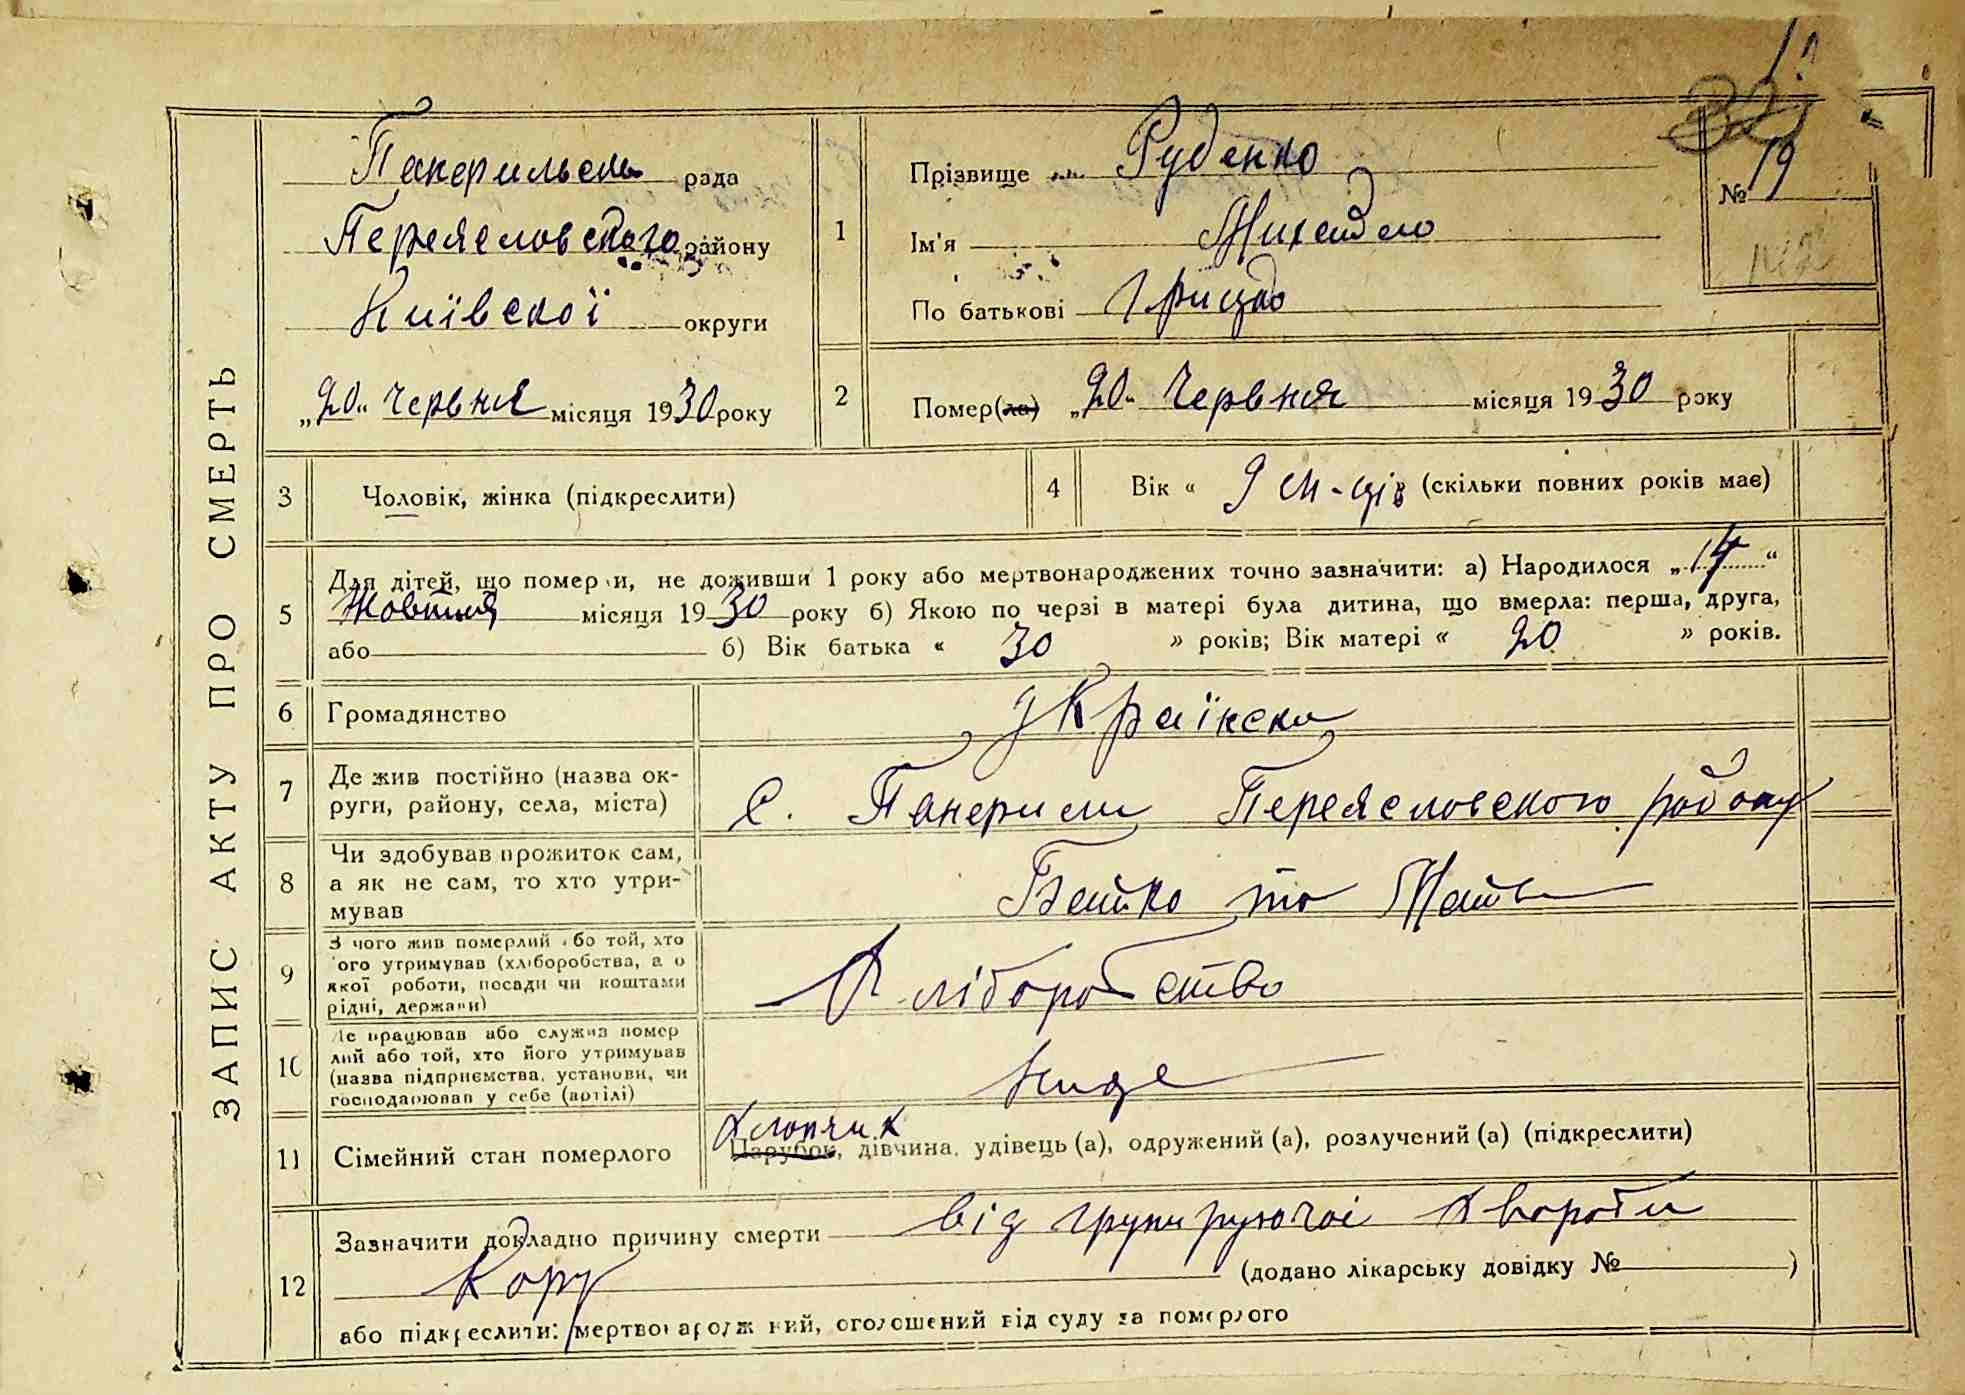 ЗАПИС АКТУ ПРО СМЕРТЬ
рада
Переясловского району
Київскої округи
„20“ Червня місяця 1930 року
1
Прізвище Руденко
Ім'я Михайло
По батькові Грицко
№ 19
2
Помер(ла) „20“ Червня місяця 1930 року
3 Чоловік, жінка (підкреслити)
4 Вік « 9 м-ців (скільки повних років має)
5
Для дітей, що померли, не доживши 1 року або мертвонароджених точно зазначити: а) Народилося „14“
Жовтня місяця 1930 року б) Якою по черзі в матері була дитина, що вмерла: перша, друга,
або б) Вік батька « 30 » років; Вік матері « 20 » років.
6 Громадянство Українска
7 Де жив постійно (назва ок-
руги, району, села, міста)
с. Переясловского району
8 Чи здобував прожиток сам,
а як не сам, то хто утри-
мував
Батько та Мати
9 З чого жив померлий або той, хто
його утримував (хліборобства, а о
якої роботи, посади чи коштами
рідні, держави)
Хліборобство
10 Де працював або служив помер
лий або той, хто його утримував
(назва підприємства, установи, чи
господарював у себе (артілі)
Нигде
11 Сімейний стан померлого
Хлопчик
Парубок, дівчина, удівець (а), одружений (а), розлучений (а) (підкреслити)
12
Зазначити докладно причину смерти від хвороби
Кору (додано лікарську довідку № )
або підкреслити: мертвонароджений, оголошений від суду за померлого